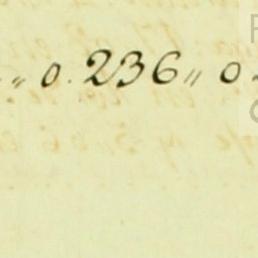 „ 0.236 „ 0